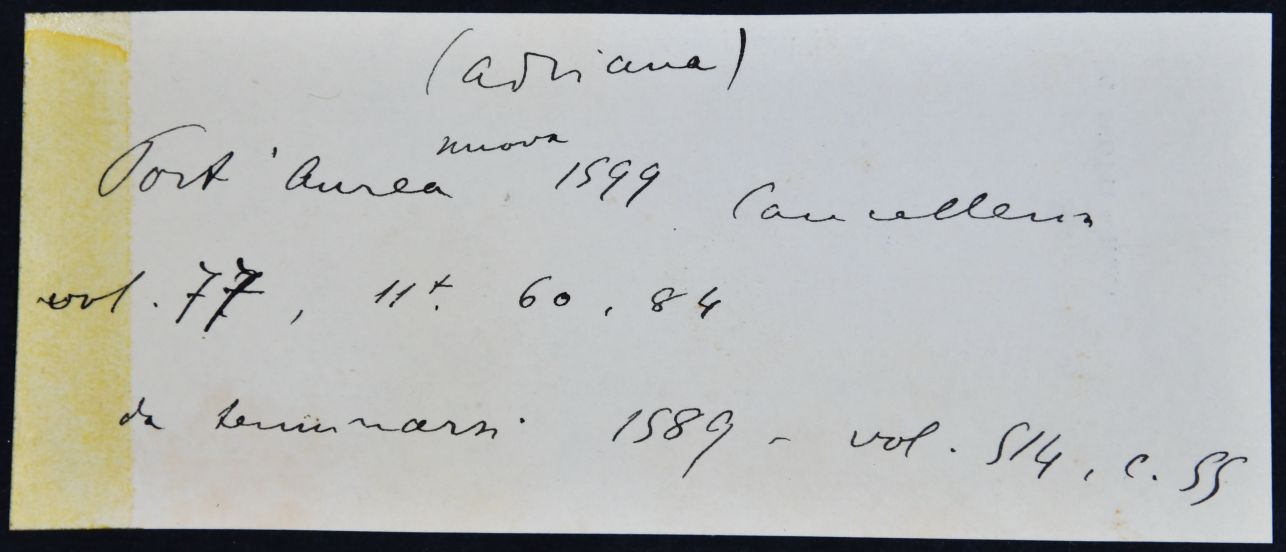 (adriana)
nuova
Port'Aurea 1599 Cancelleria
vol. 77, 11t. 60, 84
da terminarsi 1589 - vol. 514, c. 55